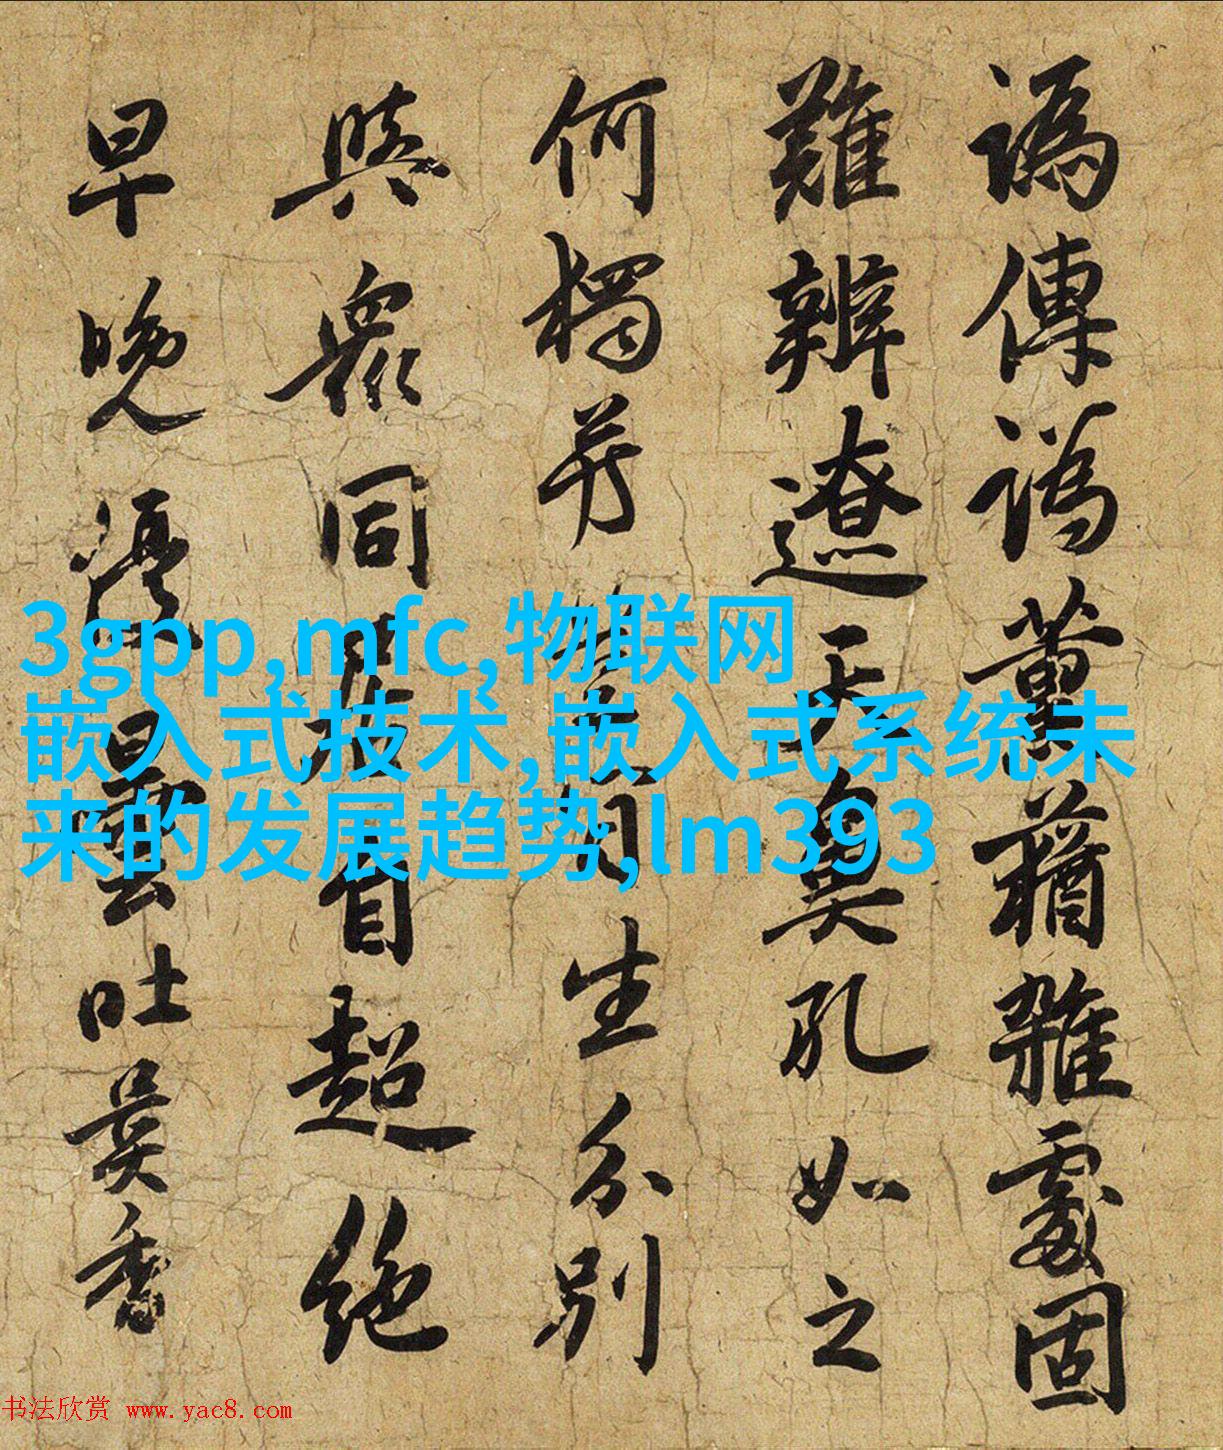 譌傳譌薰蕕雜處固
難辨遼天鼻孔如之
何獨生分別
衆同超絶
早晚優曇吐異香
3gpp,mfc,物联网
嵌入式技术,嵌入式系统未
来的发展趋势,lm393
书法欣赏 www.yac8.com